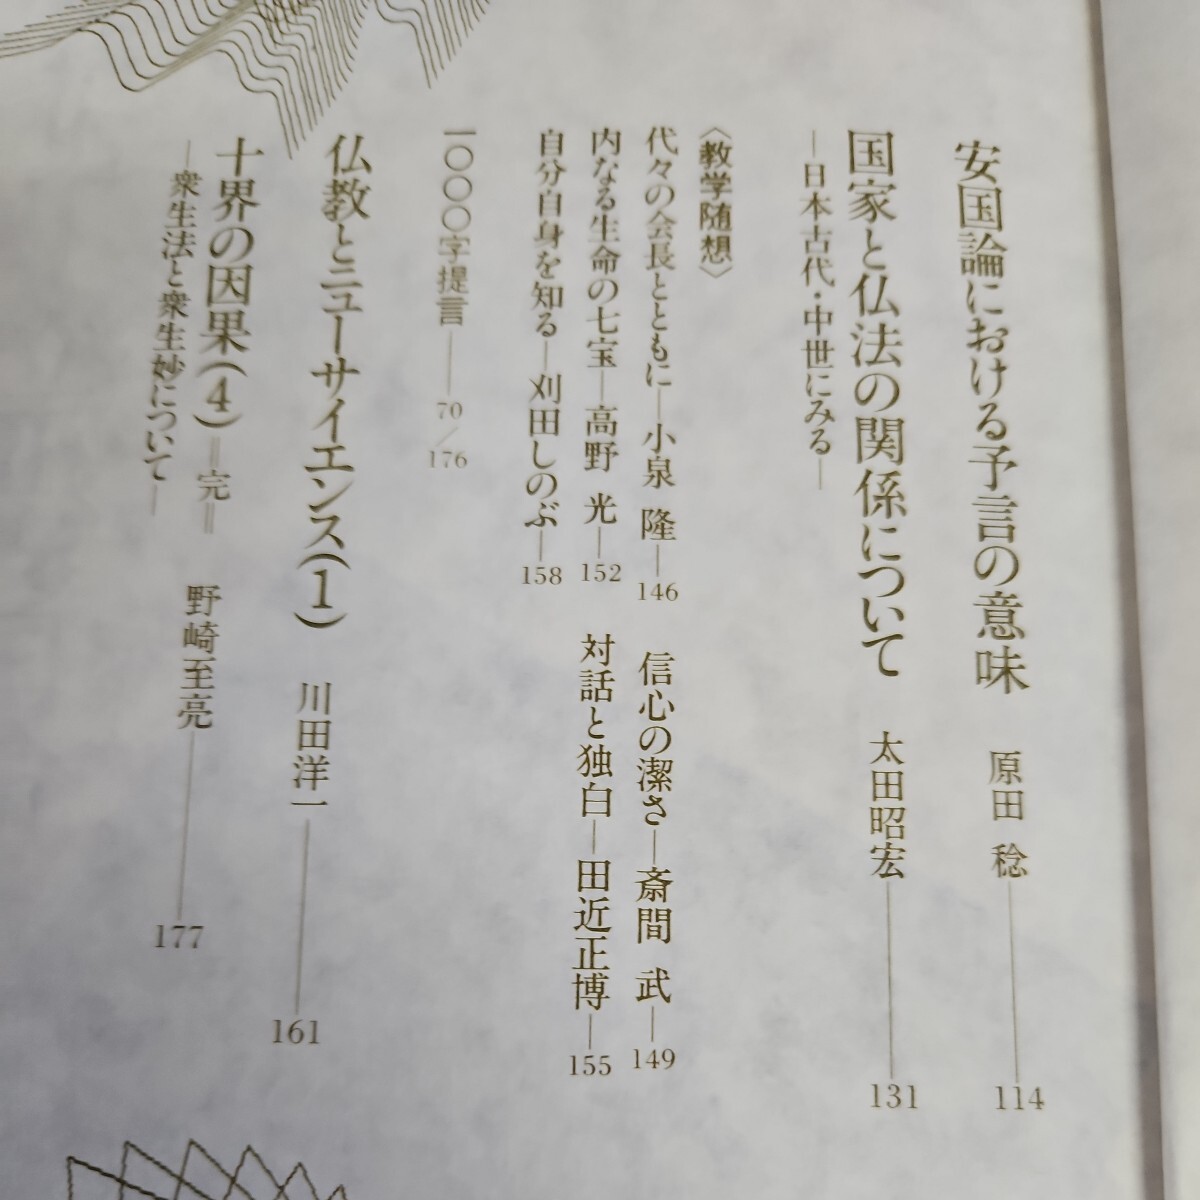 安国論における予言の意味 原田 稔 114
国家と仏法の関係について 太田昭宏 131
―日本古代・中世にみる―
〈教学随想〉
代々の会長とともに―小泉 隆―146 信心の潔さ―斎間 武―149
内なる生命の七宝―高野 光―152 対話と独白―田近正博―155
自分自身を知る―刈田しのぶ―158
一〇〇〇字提言――70／176
仏教とニューサイエンス(1) 川田洋一――161
十界の因果(4)＝完＝ 野崎至亮――177
―衆生法と衆生妙について―